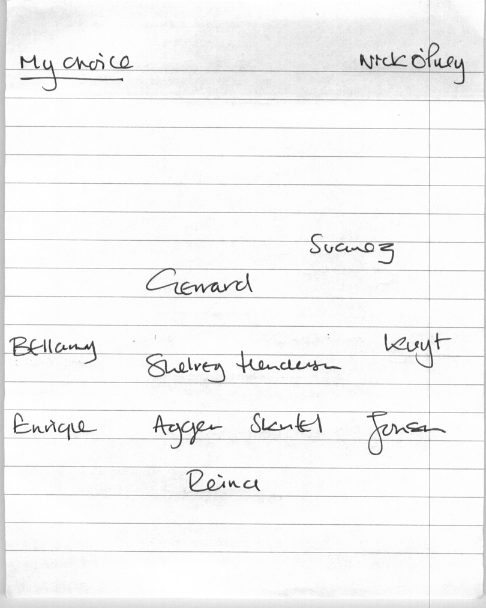 My choice Nick O'huey
Suarez
Gerrard
Bellamy Kuyt
Shelvey Henderson
Enrique Agger Skrtel Jonson
Reina